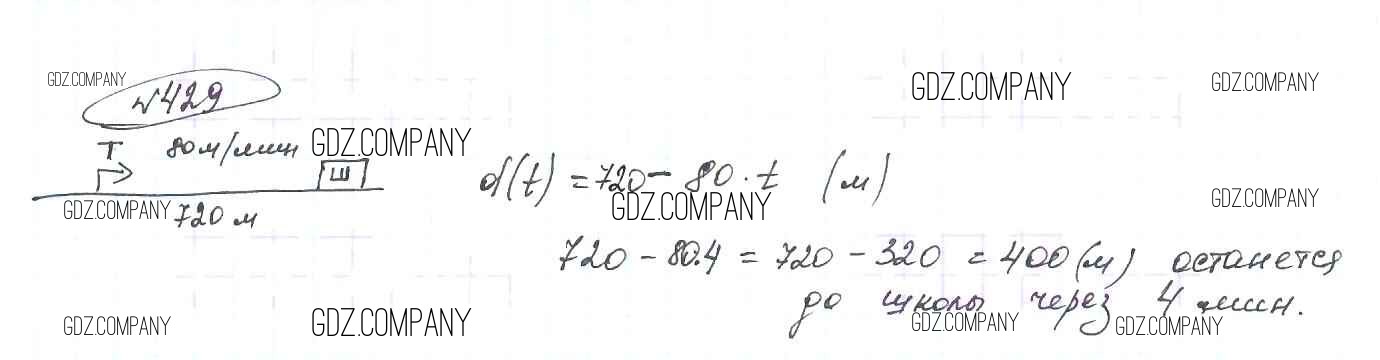 GDZ.COMPANY
№429
GDZ.COMPANY
GDZ.COMPANY
Т 80 м/мин GDZ.COMPANY
Ш
d(t) = 720 - 80 · t (м)
GDZ.COMPANY 720 м
GDZ.COMPANY
GDZ.COMPANY
720 - 80.4 = 720 - 320 = 400 (м) останется
до школы через 4 мин.
GDZ.COMPANY
GDZ.COMPANY
GDZ.COMPANY
GDZ.COMPANY